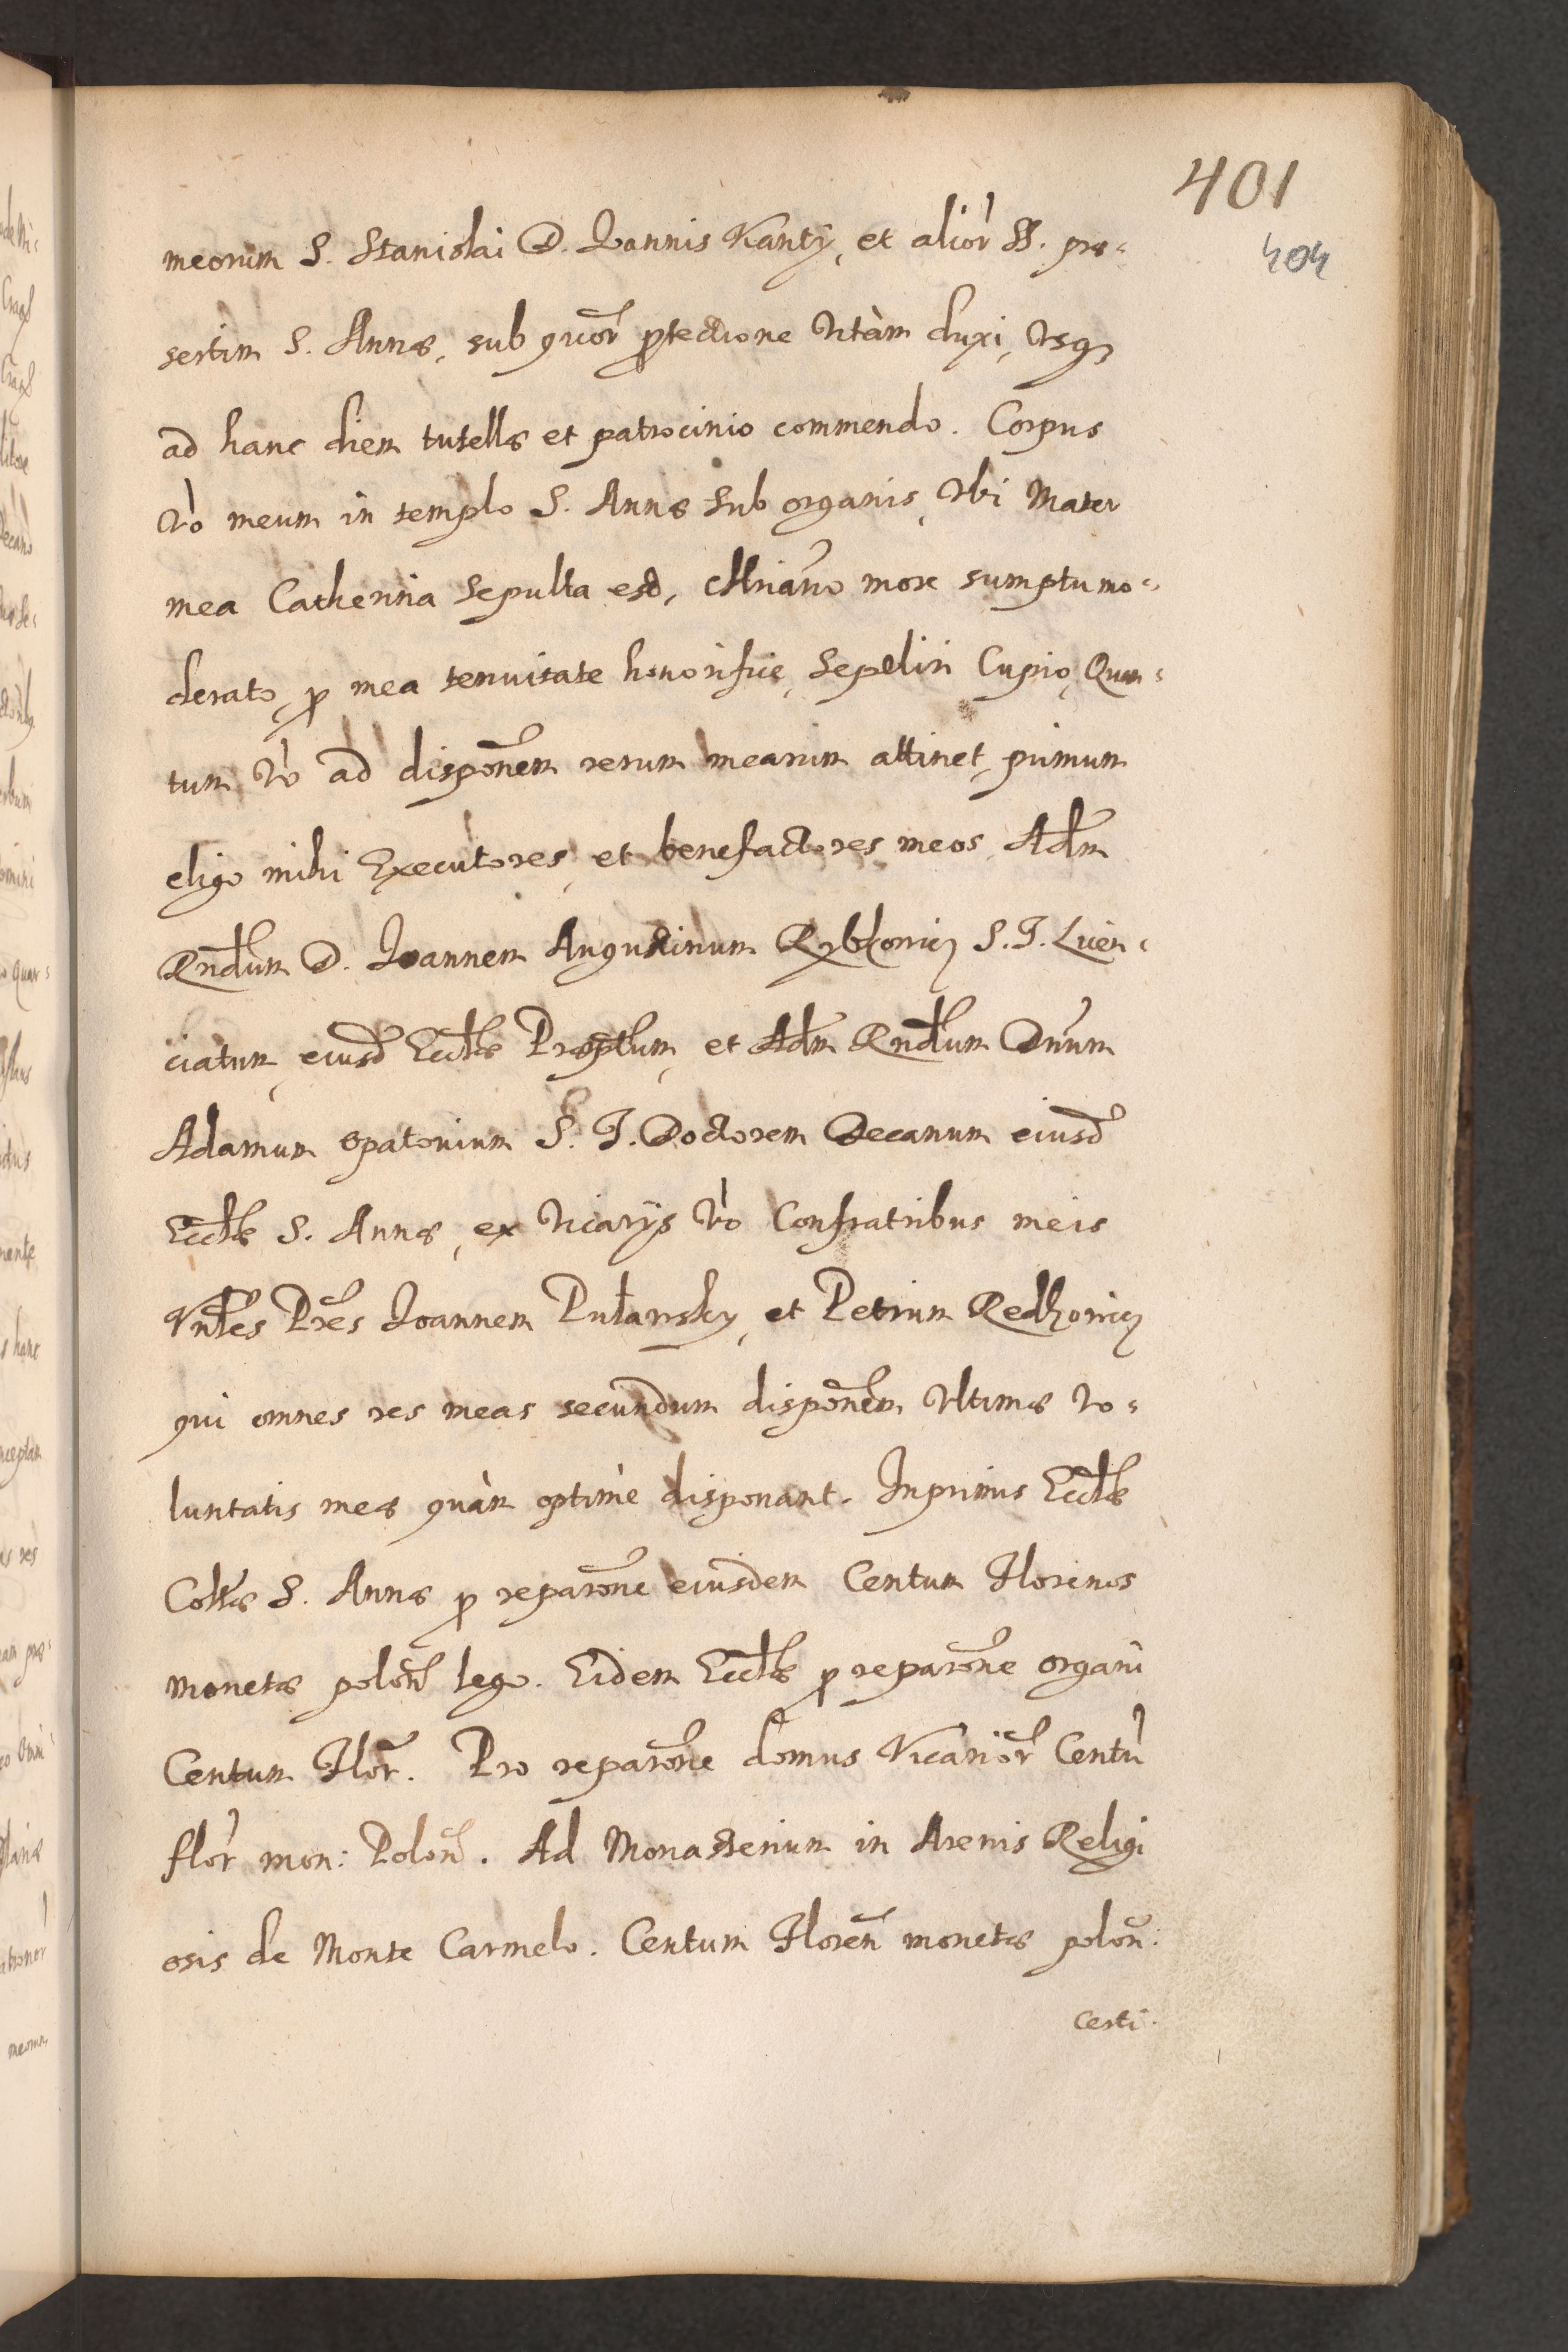 401
404
meorum S. Stanislai D. Ioannis Kantÿ, et alior̃ SS. præ-
sertim S. Annæ, sub quor̃ ꝓtectione Vitàm duxi, Vsqꝫ
ad hanc diem tutellæ et patrocinio commendo. Corpus
Vo meum in templo S. Annæ sub organis, Vbi Mater
mea Catherina sepulta est, Chriãno more sumptu mo-
derato, ꝓ mea tenuitate honorificè, sepeliri Cupio, Quan-
tum Vo ad disponẽm rerum mearum attinet, primum
eligo mihi Executores, et benefactores meos Adm̃
Rndum D. Ioannem Augustinum Rybkowicz S. T. Licen-
ciatum, eiusd̃ Eccłæ Præptum, et Adm̃ Rndum Dnum
Adamum Opatovium S. T. Doctorem Decanum eiusd̃
Eccłæ S. Annæ, ex Vicarÿs Vo Confratribus meis
Vnbles Pr̃es Ioannem Pułansky, et Petrum
qui omnes res meas secundum disponẽm Vltimæ Vo-
luntatis meæ quàm optimè disponant. Inprimis Eccłæ
Collæ S. Annæ ꝓ reparõne eiusdem Centum Florenos
monetæ polon̄ lego. Eidem Eccłæ ꝓ reparõne organi
Centum Flor̃. Pro reparõne domus Vicarior̃ Centũ
flor̃ mon: Polon̄. Ad Monasterium in Arenis Religi
osis de Monte Carmelo. Centum Floren̄ monetæ polon̄:
certi